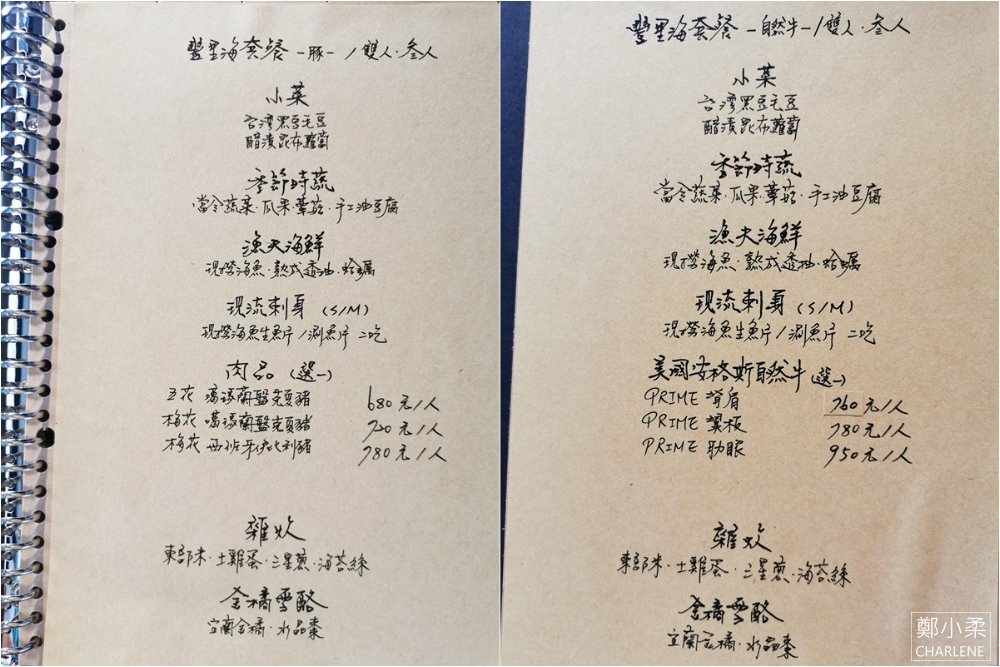 豐里海套餐 -豚- /雙人·叁人
小菜
台灣黑豆毛豆
醋漬昆布蘿蔔
季節時蔬
當令蔬菜·瓜果蕈菇·手工油豆腐
漁夫海鮮
現撈海魚·熟成透抽·蛤蠣
現流刺身 (S/M)
現撈海魚生魚片/涮魚片 二吃
肉品 (選一)
五花 噶瑪蘭黑豬 680元/人
梅花 噶瑪蘭黑豬 720元/人
梅花 西班牙伊比利豬 780元/人
雜炊
東部米·土雞蛋·三星蔥·海苔絲
金橘雪酪
宜蘭金橘·水晶棗
豐里海套餐 -自然牛- /雙人·叁人
小菜
台灣黑豆毛豆
醋漬昆布蘿蔔
季節時蔬
當令蔬菜·瓜果蕈菇·手工油豆腐
漁夫海鮮
現撈海魚·熟成透抽·蛤蠣
現流刺身 (S/M)
現撈海魚生魚片/涮魚片 二吃
美國安格斯自然牛 (選一)
PRIME 肩 760元/人
PRIME 翼板 780元/人
PRIME 肋眼 950元/人
雜炊
東部米·土雞蛋·三星蔥·海苔絲
金橘雪酪
宜蘭金橘·水晶棗
鄭小柔
CHARLENE